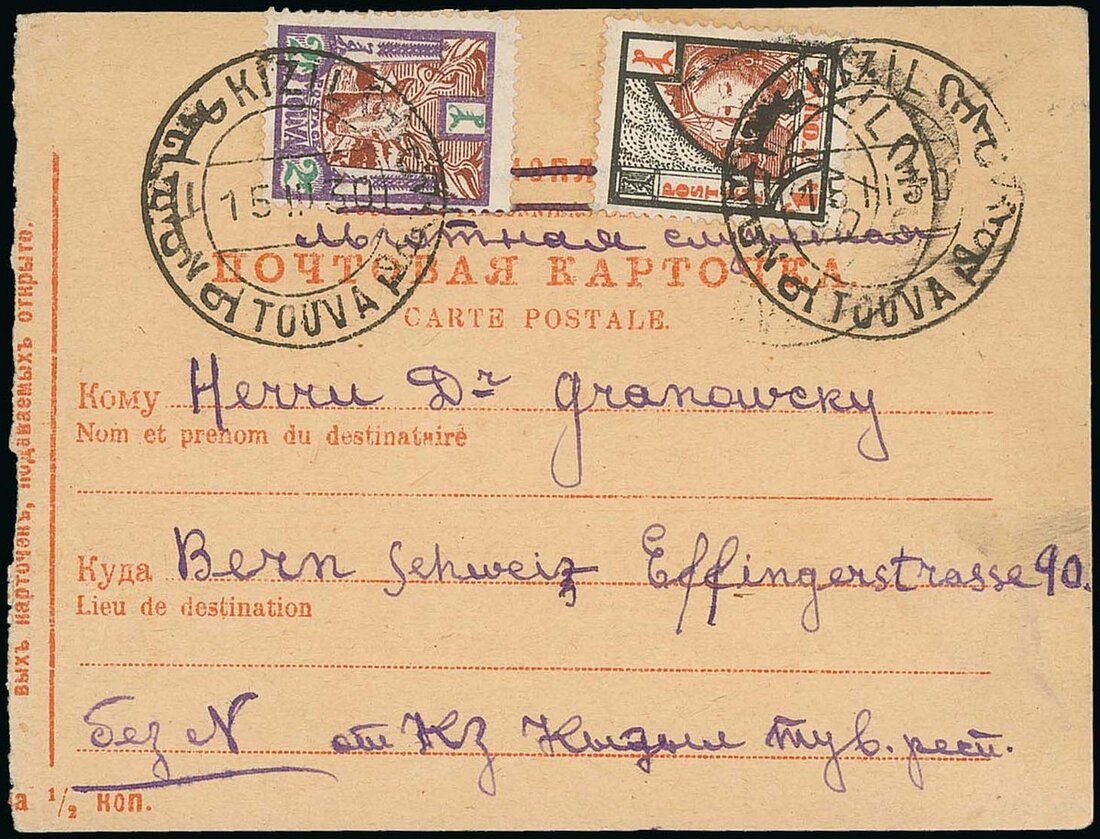 KIZIL
15 III 30
TOUVA
2 TOUVA 2
POSTAGE
KIZIL
TOUVA
льготная
ПОЧТОВАЯ КАРТОЧКА.
CARTE POSTALE.
Кому Herrn Dr Granowcky
Nom et prenom du destinataire
Куда Bern Schweiz Effingerstrasse 90.
Lieu de destination
Без N от КЗ Кызыл тув. респ.
выхъ карточекъ, подаваемыхъ открыто.
а 1/2 коп.